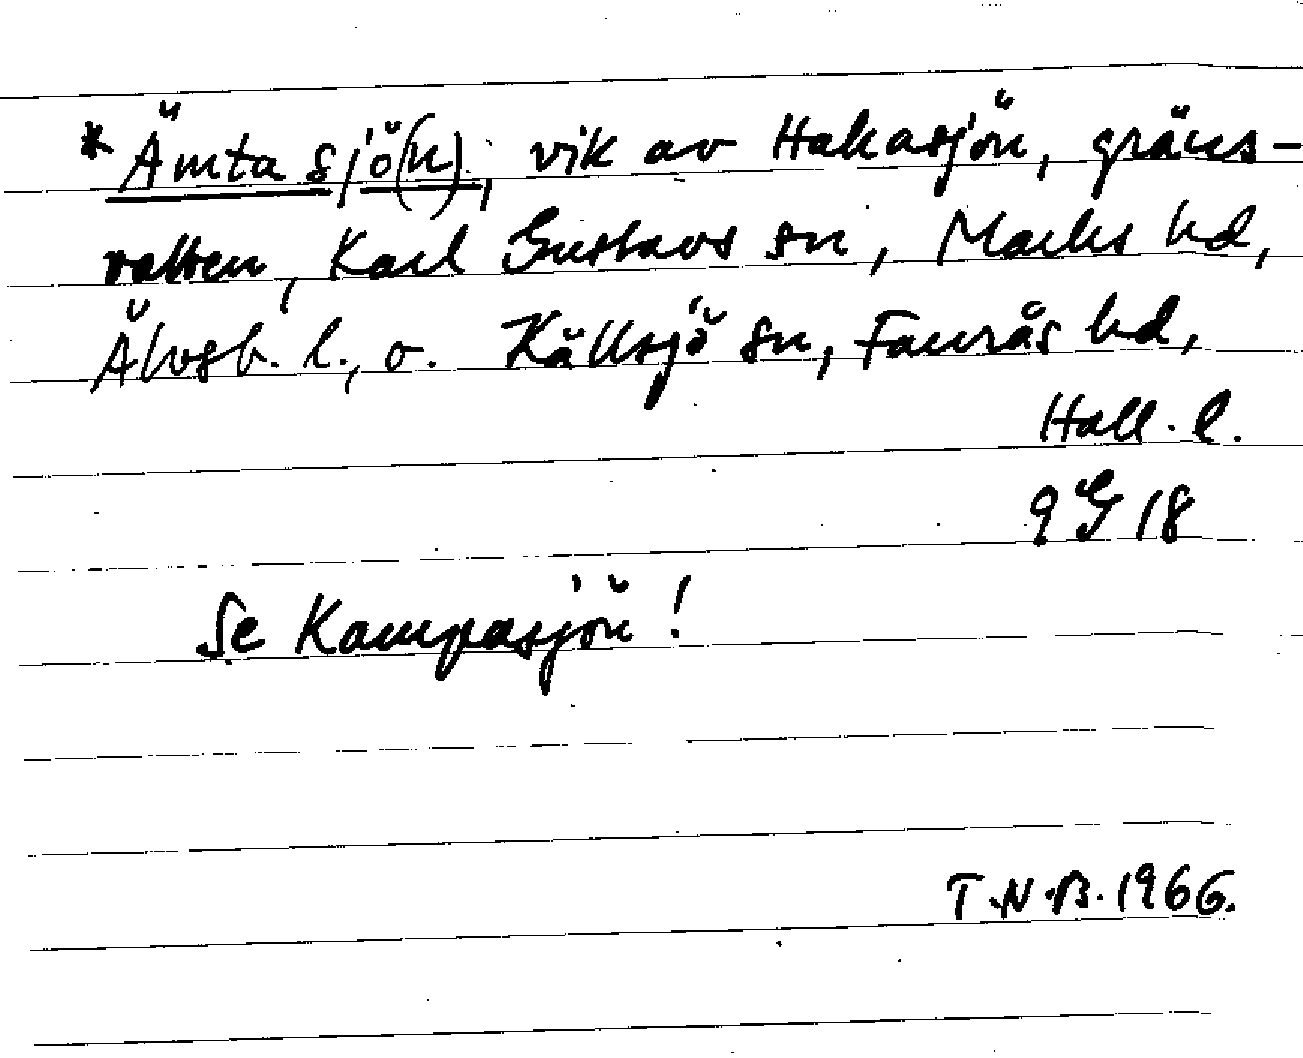 *Ämta sjö(n), vik av Hakasjön, gräns-
vatten, Karl Gustavs sn, Marks hd,
Älvsb. l., o. Källsjö sn, Faurås hd,
Hall. l.
9 G 18
Se Kampasjön!
T.N.B. 1966.